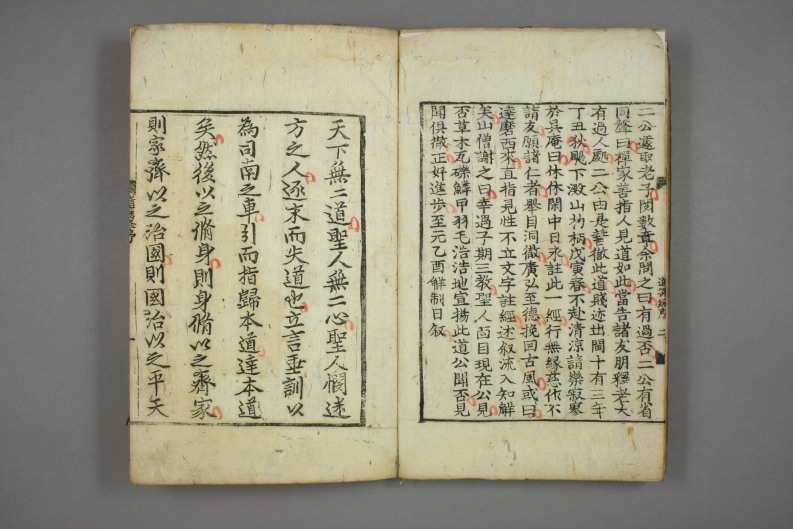 二公遽取老子閱數章余問之曰有過否二公有省
同聲曰禪家善指人見道如此當告諸友朋釋老大
有過人處二公由是
丁丑秋颺下澱山拂柄戊寅春不赴清涼請樂寂寞
於吳庵曰休休閒中日永註此一經行無緣慈作不
請友願諸仁者擧目洞徹廣弘至德挽回古風或曰
達磨西來直指見性不立文字註經述叙流入知解
矣山僧謝之曰幸過子期三教聖人面目現在公見
否草木瓦礫鱗甲羽毛浩浩地宣揚此道公聞否見
聞俱徹正好進步至元乙酉解制日叙
天下無二道聖人無二心聖人憫迷
方之人逐末而失道也立言垂訓以
為司南之車引而指歸本道達本道
矣然後以之脩身則身脩以之齊家
則家齊以之治國則國治以之平天